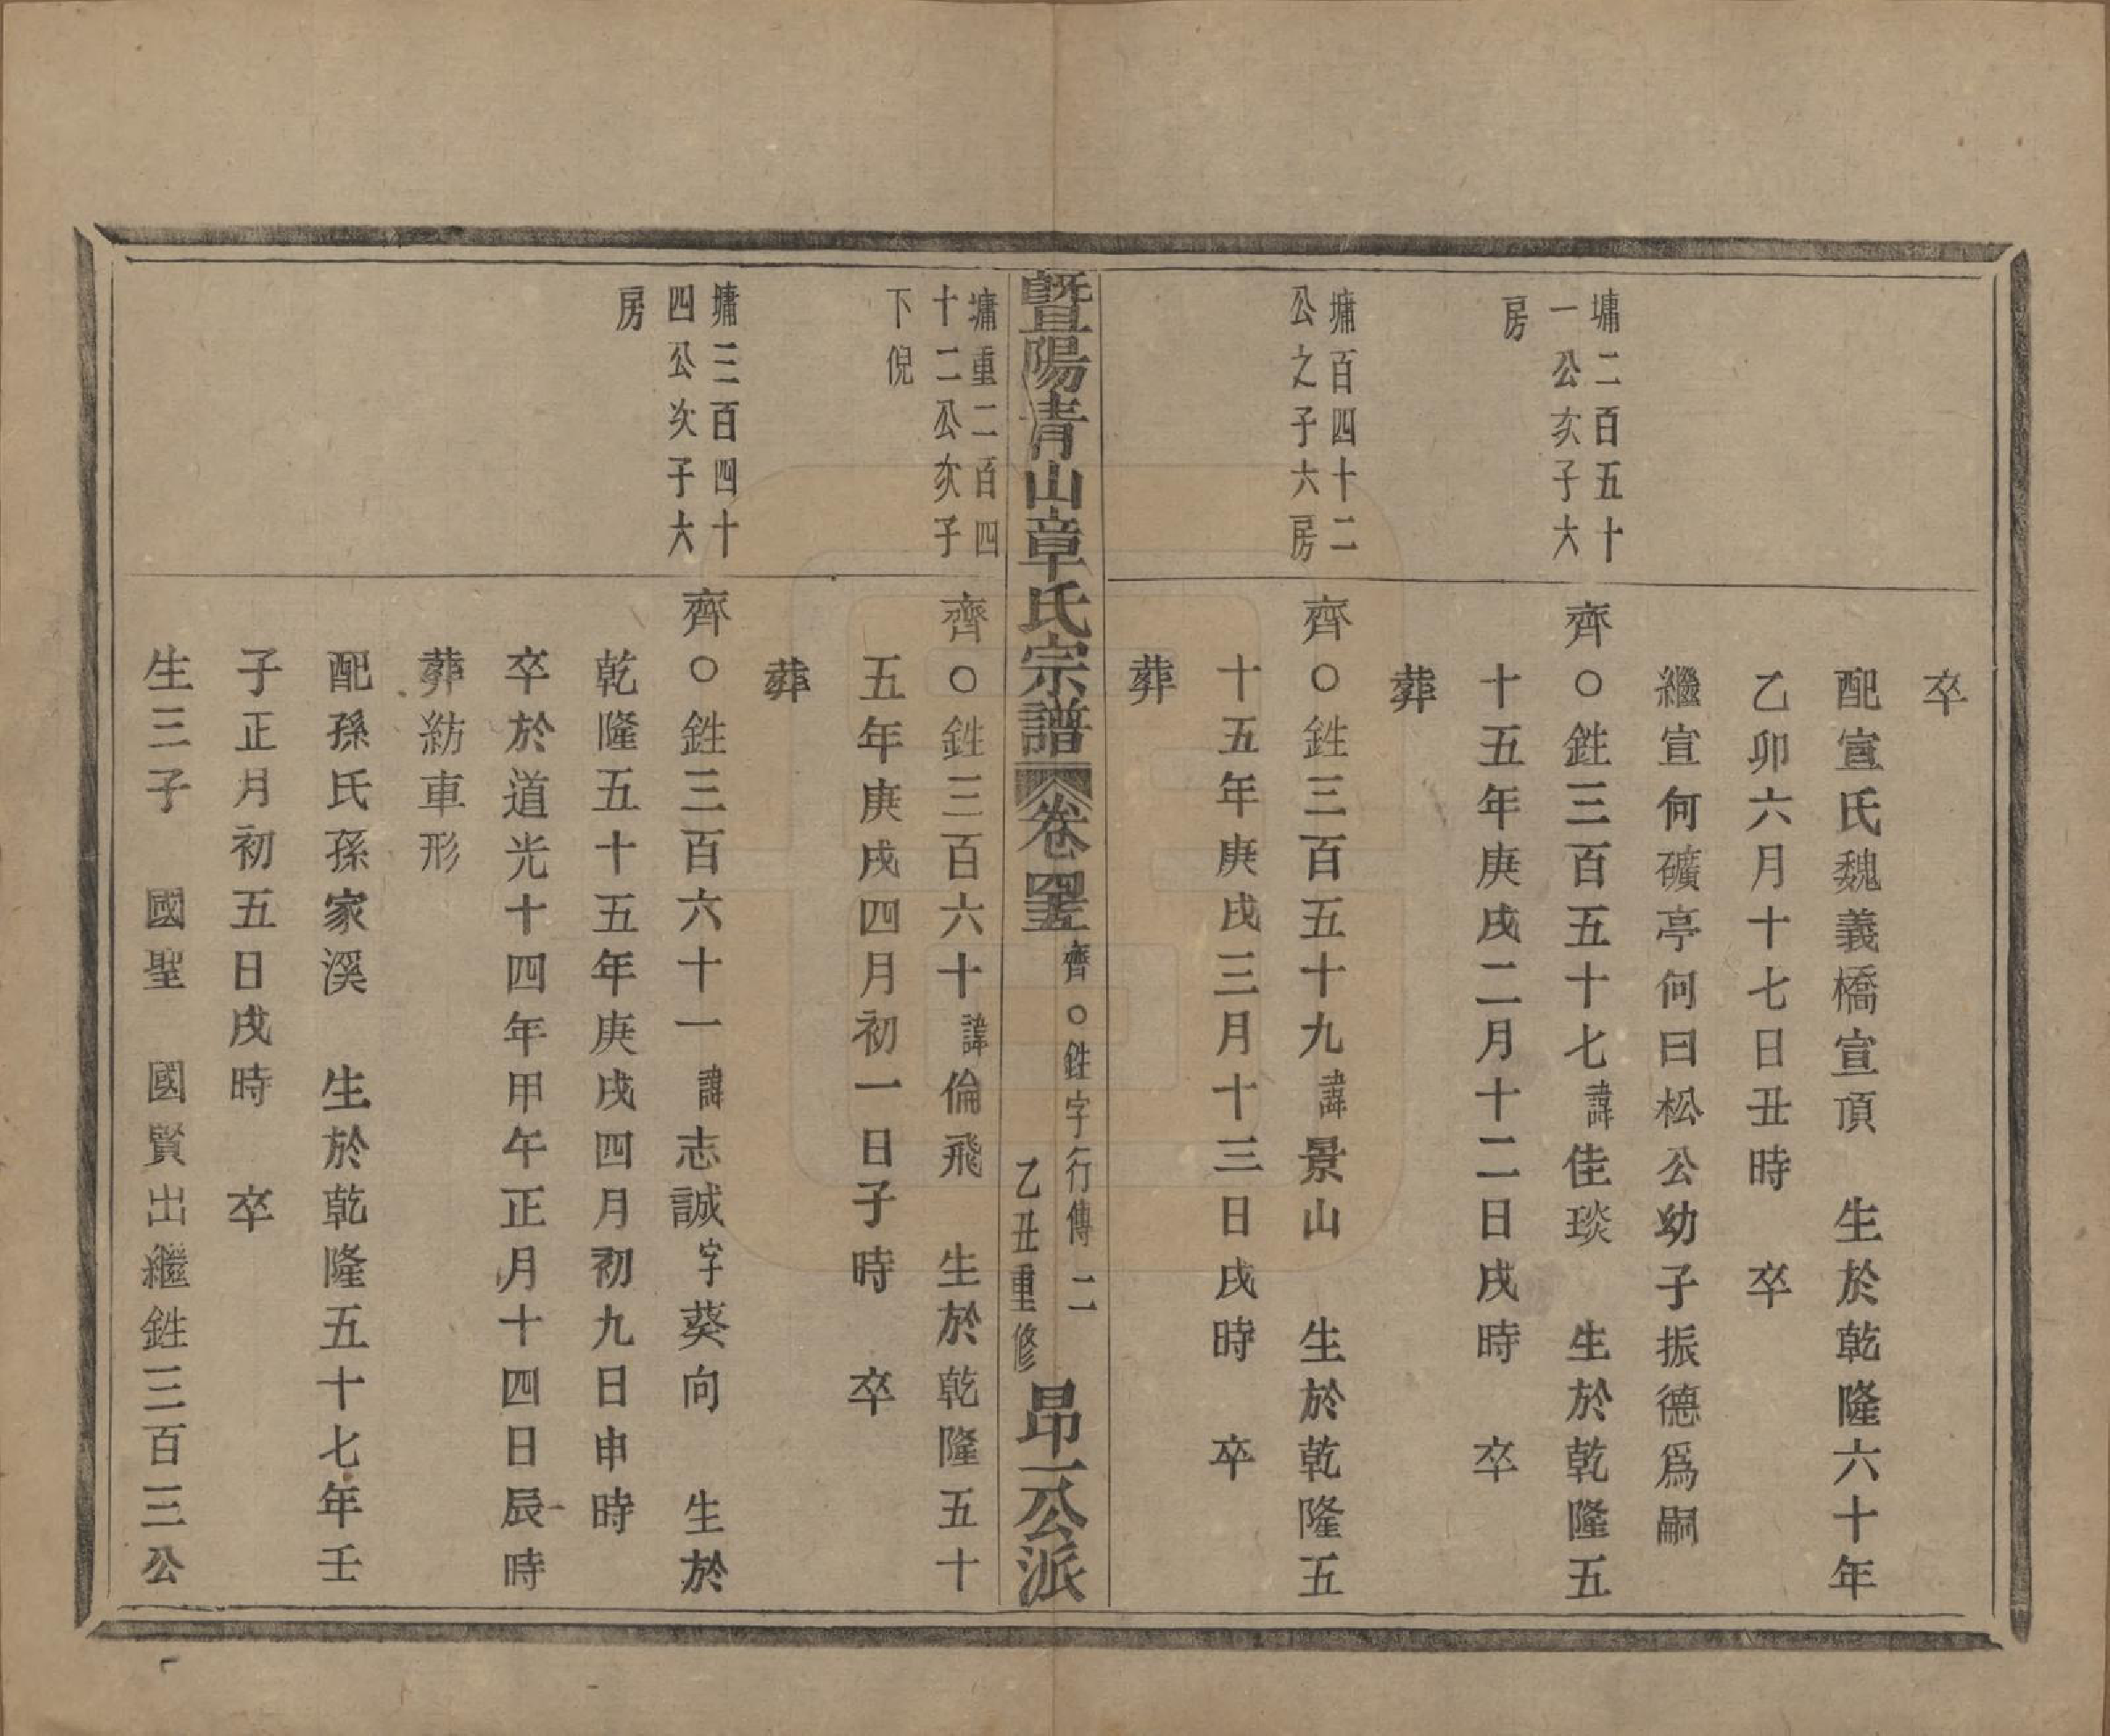 卒
配宣氏魏義橋宣頂　生於乾隆六十年
乙卯六月十七日丑時　卒
繼宣何礦亭何曰松公幼子振德爲嗣
墉二百五十
一公次子大
房
齊○鉎三百五十七諱佳琰　生於乾隆五
十五年庚戌二月十二日戌時　卒
葬
墉百四十二
公之子六房
齊○鉎三百五十九諱景山　生於乾隆五
十五年庚戌三月十三日戌時　卒
葬
暨陽青山章氏宗譜　卷四五　齊○鉎字行傳　二　乙丑重修　昂一公派
墉重二百四
十二公次子
下倪
齊○鉎三百六十諱倫飛　生於乾隆五十
五年庚戌四月初一日子時　卒
葬
墉三百四十
四公次子大
房
齊○鉎三百六十一諱志誠字葵向　生於
乾隆五十五年庚戌四月初九日申時
卒於道光十四年甲午正月十四日辰時
葬紡車形
配孫氏孫家溪　生於乾隆五十七年壬
子正月初五日戌時　卒
生三子　國聖　國賢出繼鉎三百三公